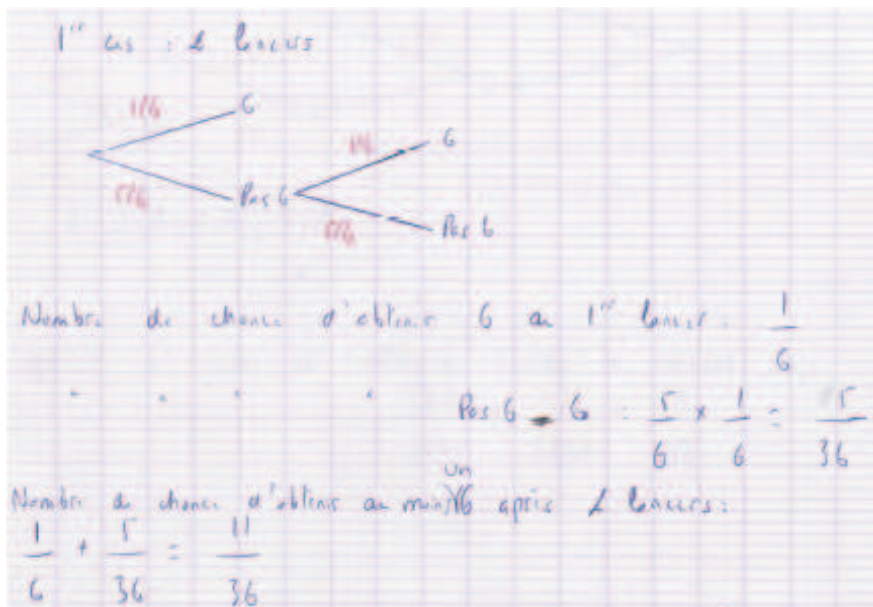 1er cas : 2 lancers
1/6 6
1/6 6
5/6 Pas 6
5/6 Pas 6
Nombre de chance d'obtenir 6 au 1er lancer : 1/6
" " " " Pas 6 - 6 : 5/6 x 1/6 = 5/36
Nombre de chance d'obtenir au moins un 6 après 2 lancers :
1/6 + 5/36 = 11/36